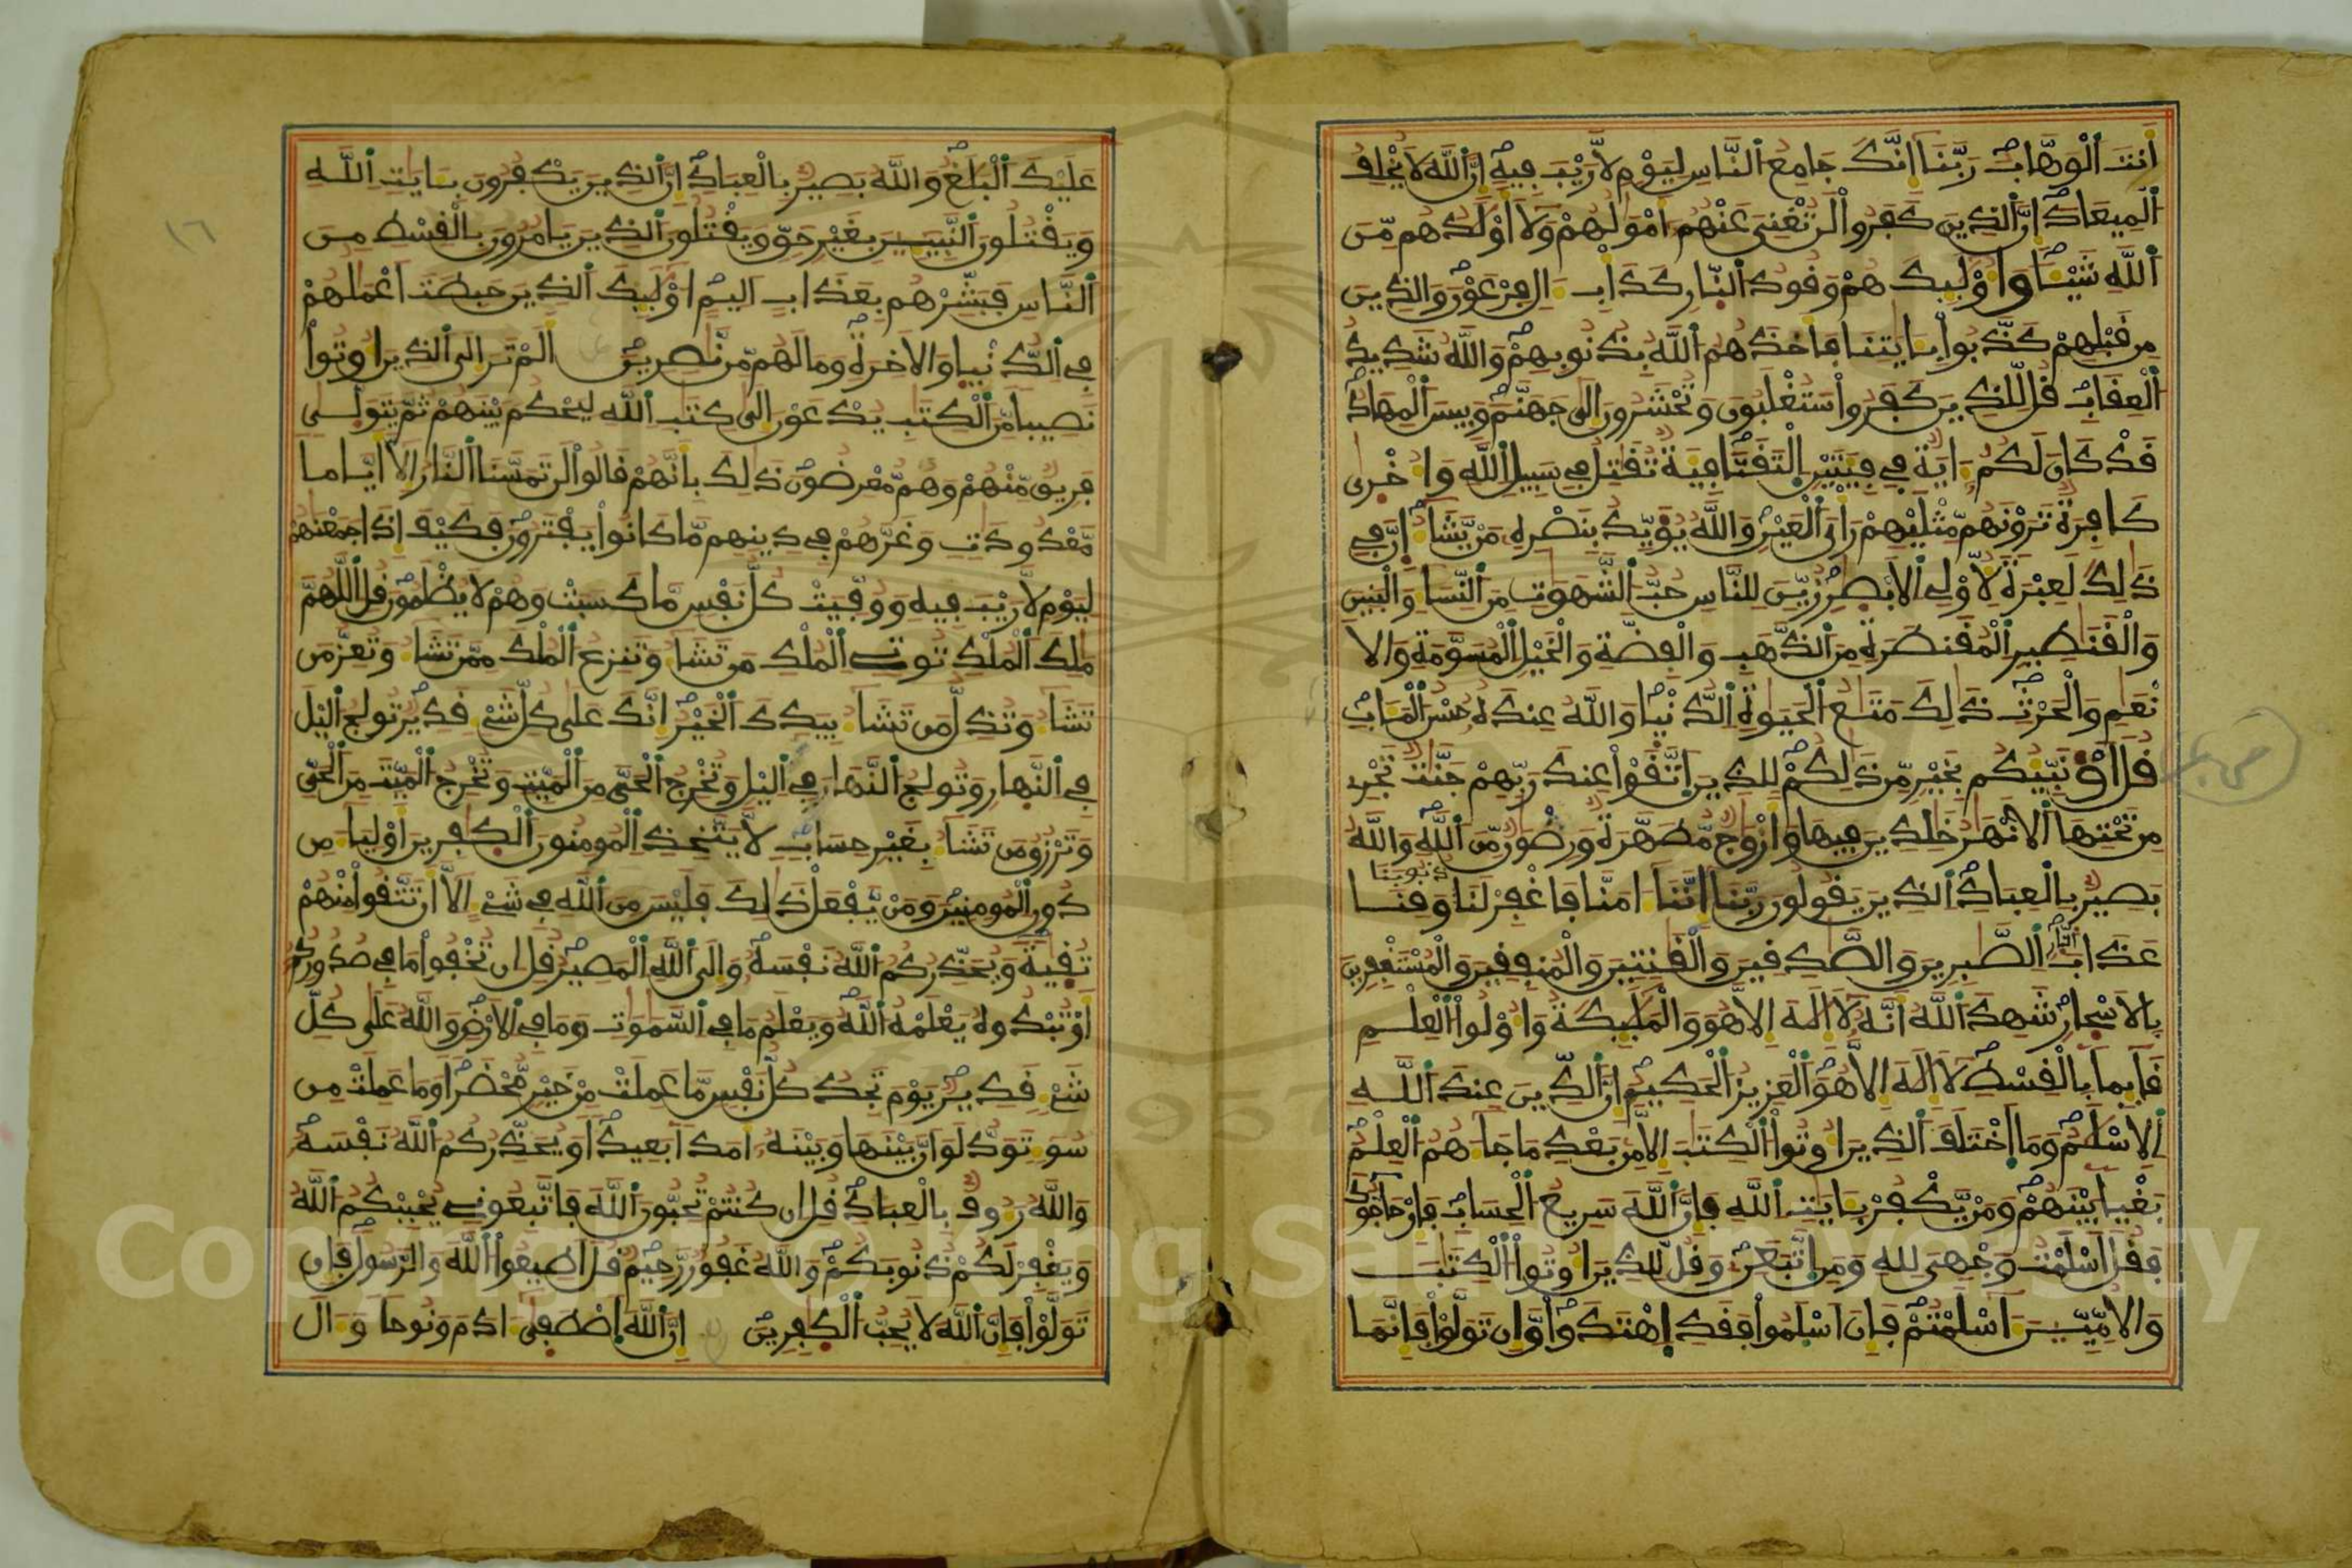 أَنتَ ٱلْوَهَّابُ رَبَّنَا إِنَّكَ جَامِعُ ٱلنَّاسِ لِيَوْمٍ لَّا رَيْبَ فِيهِ إِنَّ ٱللَّهَ لَا يُخْلِفُ
ٱلْمِيعَادَ إِنَّ ٱلذِينَ كَفَرُواْ لَن تُغْنِىَ عَنْهُمْ أَمْوَٰلُهُمْ وَلَا أَوْلَٰدُهُم مِّنَ
ٱللَّهِ شَيْـًٔا وَأُوْلَٰٓئِكَ هُمْ وَقُودُ ٱلنّارِ كَدَابِ ءَالِ فِرْعَوْنَ وَالذِينَ
مِن قَبْلِهِمْ كَذَّبُواْ بِـَٔايَٰتِنَا فَأَخَذَهُمُ ٱللَّهُ بِذُنُوبِهِمْ وَاللَّهُ شَدِيدُ
ٱلْعِقَابِ قُل لِّلذِينَ كَفَرُواْ سَتُغْلَبُونَ وَتُحْشَرُونَ إِلَىٰ جَهَنَّمَ وَبِيسَ ٱلْمِهَادُ
قَدْ كَانَ لَكُمْ ءَايَةٌ فِى فِئَتَيْنِ ٱلْتَقَتَا فِئَةٌ تُقَٰتِلُ فِى سَبِيلِ ٱللَّهِ وَأُخْرَىٰ
كَافِرَةٌ تَرَوْنَهُم مِّثْلَيْهِمْ رَأْىَ ٱلْعَيْنِ وَاللَّهُ يُؤَيِّدُ بِنَصْرِهِ مَنْ يَّشَآءُ إِنَّ فِى
ذَٰلِكَ لَعِبْرَةً لِّأُوْلِى ٱلْأَبْصَٰرِ زُيِّنَ لِلنَّاسِ حُبُّ ٱلشَّهَوَٰتِ مِنَ ٱلنِّسَآءِ وَالْبَنِينَ
وَالْقَنَٰطِيرِ ٱلْمُقَنطَرَةِ مِنَ ٱلذَّهَبِ وَالْفِضَّةِ وَالْخَيْلِ ٱلْمُسَوَّمَةِ وَالَا
نْعَٰمِ وَالْحَرْثِ ذَٰلِكَ مَتَٰعُ ٱلْحَيَوٰةِ ٱلدُّنْيَا وَاللَّهُ عِندَهُ حُسْنُ ٱلْمَـَٔابِ
قُلْ أَؤُنَبِّئُكُم بِخَيْرٍ مِّن ذَٰلِكُمْ لِلذِينَ ٱتَّقَوْاْ عِندَ رَبِّهِمْ جَنَّٰتٌ تَجْرِى
مِن تَحْتِهَا ٱلْأَنْهَٰرُ خَٰلِدِينَ فِيهَا وَأَزْوَٰجٌ مُّطَهَّرَةٌ وَرِضْوَٰنٌ مِّنَ ٱللَّهِ وَاللَّهُ
بَصِيرٌ بِالْعِبَادِ ٱلذِينَ يَقُولُونَ رَبَّنَا إِنَّنَا ءَامَنَّا فَاغْفِرْ لَنَا ذُنُوبَنَا وَقِنَا
عَذَابَ ٱلنّارِ ٱلصَّٰبِرِينَ وَالصَّٰدِقِينَ وَالْقَٰنِتِينَ وَالْمُنفِقِينَ وَالْمُسْتَغْفِرِينَ
بِالْأَسْحَارِ شَهِدَ ٱللَّهُ أَنَّهُ لَا إِلَٰهَ إِلَّا هُوَ وَالْمَلَٰٓئِكَةُ وَأُوْلُواْ ٱلْعِلْمِ
قَآئِماً بِالْقِسْطِ لَا إِلَٰهَ إِلَّا هُوَ ٱلْعَزِيزُ ٱلْحَكِيمُ إِنَّ ٱلدِّينَ عِندَ ٱللَّهِ
ٱلْإِسْلَٰمُ وَمَا ٱخْتَلَفَ ٱلذِينَ أُوتُواْ ٱلْكِتَٰبَ إِلَّا مِنۢ بَعْدِ مَا جَآءَهُمُ ٱلْعِلْمُ
بَغْياً بَيْنَهُمْ وَمَنْ يَّكْفُرْ بِـَٔايَٰتِ ٱللَّهِ فَإِنَّ ٱللَّهَ سَرِيعُ ٱلْحِسَابِ فَإِنْ حَآجُّوكَ
فَقُلْ أَسْلَمْتُ وَجْهِىَ لِلهِ وَمَنِ ٱتَّبَعَنِ وَقُل لِّلذِينَ أُوتُواْ ٱلْكِتَٰبَ
وَالْأُمِّيِّينَ ءَآسْلَمْتُمْ فَإِنْ أَسْلَمُواْ فَقَدِ ٱهْتَدَواْ وَّإِن تَوَلَّوْاْ فَإِنَّمَا
عَلَيْكَ ٱلْبَلَٰغُ وَاللَّهُ بَصِيرٌ بِالْعِبَادِ إِنَّ ٱلذِينَ يَكْفُرُونَ بِـَٔايَٰتِ ٱللَّهِ
وَيَقْتُلُونَ ٱلنَّبِيٓـِٔينَ بِغَيْرِ حَقٍّ وَيَقْتُلُونَ ٱلذِينَ يَامُرُونَ بِالْقِسْطِ مِنَ
ٱلنَّاسِ فَبَشِّرْهُم بِعَذَابٍ أَلِيمٍ أُوْلَٰٓئِكَ ٱلذِينَ حَبِطَتَ اَعْمَٰلُهُمْ
فِى ٱلدُّنْيَا وَالْأَخِرَةِ وَمَا لَهُم مِّن نَّٰصِرِينَ أَلَمْ تَرَ إِلَى ٱلذِينَ أُوتُواْ
نَصِيباً مِّنَ ٱلْكِتَٰبِ يُدْعَوْنَ إِلَىٰ كِتَٰبِ ٱللَّهِ لِيَحْكُمَ بَيْنَهُمْ ثُمَّ يَتَوَلَّىٰ
فَرِيقٌ مِّنْهُمْ وَهُم مُّعْرِضُونَ ذَٰلِكَ بِأَنَّهُمْ قَالُواْ لَن تَمَسَّنَا ٱلنَّارُ إِلَّا أَيَّاماً
مَّعْدُودَٰتٍ وَغَرَّهُمْ فِى دِينِهِم مَّا كَانُواْ يَفْتَرُونَ فَكَيْفَ إِذَا جَمَعْنَٰهُمْ
لِيَوْمٍ لَّا رَيْبَ فِيهِ وَوُفِّيَتْ كُلُّ نَفْسٍ مَّا كَسَبَتْ وَهُمْ لَا يُظْلَمُونَ قُلِ ٱللَّهُمَّ
مَٰلِكَ ٱلْمُلْكِ تُوتِى ٱلْمُلْكَ مَن تَشَآءُ وَتَنزِعُ ٱلْمُلْكَ مِمَّن تَشَآءُ وَتُعِزُّ مَن
تَشَآءُ وَتُذِلُّ مَن تَشَآءُ بِيَدِكَ ٱلْخَيْرُ إِنَّكَ عَلَىٰ كُلِّ شَىْءٍ قَدِيرٌ تُولِجُ ٱلَّيْلَ
فِى ٱلنَّهَارِ وَتُولِجُ ٱلنَّهَارَ فِى ٱلَّيْلِ وَتُخْرِجُ ٱلْحَىَّ مِنَ ٱلْمَيِّتِ وَتُخْرِجُ ٱلْمَيِّتَ مِنَ ٱلْحَىِّ
وَتَرْزُقُ مَن تَشَآءُ بِغَيْرِ حِسَابٍ لَّا يَتَّخِذِ ٱلْمُومِنُونَ ٱلْكَٰفِرِينَ أَوْلِيَآءَ مِن
دُونِ ٱلْمُومِنِينَ وَمَنْ يَّفْعَلْ ذَٰلِكَ فَلَيْسَ مِنَ ٱللَّهِ فِى شَىْءٍ إِلَّا أَن تَتَّقُواْ مِنْهُمْ
تُقَيٰةً وَيُحَذِّرُكُمُ ٱللَّهُ نَفْسَهُ وَإِلَى ٱللَّهِ ٱلْمَصِيرُ قُلْ إِن تُخْفُواْ مَا فِى صُدُورِكُمْ
أَوْ تُبْدُوهُ يَعْلَمْهُ ٱللَّهُ وَيَعْلَمُ مَا فِى ٱلسَّمَٰوَٰتِ وَمَا فِى ٱلْأَرْضِ وَاللَّهُ عَلَىٰ كُلِّ
شَىْءٍ قَدِيرٌ يَوْمَ تَجِدُ كُلُّ نَفْسٍ مَّا عَمِلَتْ مِنْ خَيْرٍ مُّحْضَراً وَمَا عَمِلَتْ مِن
سُوٓءٍ تَوَدُّ لَوْ أَنَّ بَيْنَهَا وَبَيْنَهُ أَمَداً بَعِيداً وَيُحَذِّرُكُمُ ٱللَّهُ نَفْسَهُ
وَاللَّهُ رَءُوفٌ بِالْعِبَادِ قُلْ إِن كُنتُمْ تُحِبُّونَ ٱللَّهَ فَاتَّبِعُونِى يُحْبِبْكُمُ ٱللَّهُ
وَيَغْفِرْ لَكُمْ ذُنُوبَكُمْ وَاللَّهُ غَفُورٌ رَّحِيمٌ قُلْ أَطِيعُواْ ٱللَّهَ وَالرَّسُولَ فَإِن
تَوَلَّوْاْ فَإِنَّ ٱللَّهَ لَا يُحِبُّ ٱلْكَٰفِرِينَ إِنَّ ٱللَّهَ ٱصْطَفَىٰ ءَادَمَ وَنُوحاً وَءَالَ
١٦
Copyright © King Saud University
1957